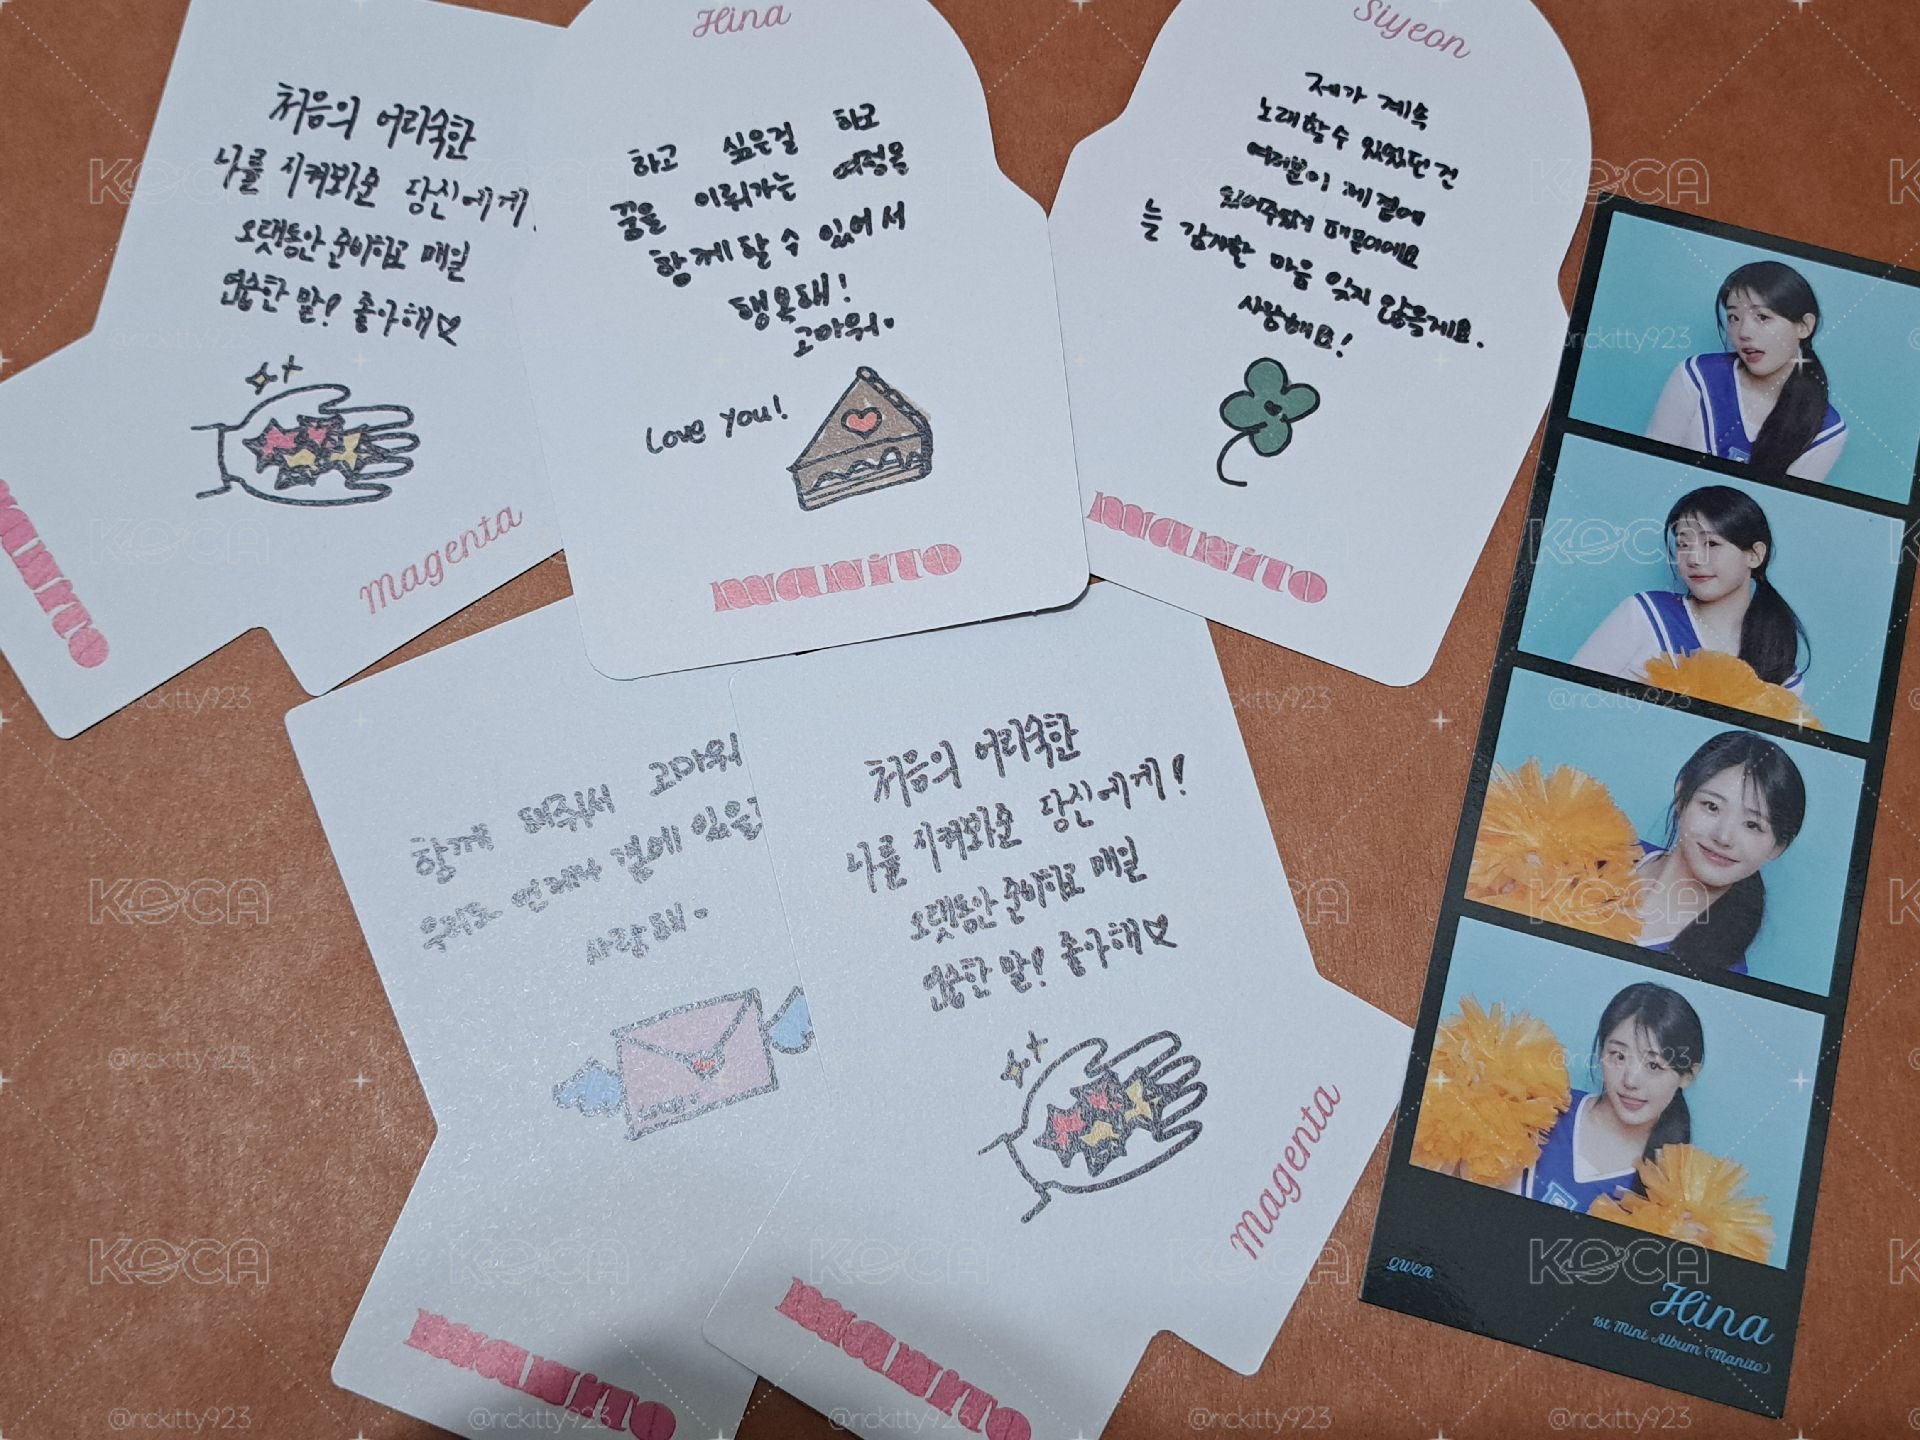 처음의 어리숙한
나를 지켜봐온 당신에게!
오랫동안 준비하고 매일
연습한 말! 좋아해♡
manito
Magenta
Hina
하고 싶은걸 하고
꿈을 이뤄가는 여정을
함께 할 수 있어서
행복해!
고마워.
Love you!
manito
Siyeon
제가 계속
노래할 수 있었던 건
여러분이 제 곁에
있어주셨기 때문이에요
늘 감사한 마음 잊지 않을게요.
사랑해요!
manito
함께 해줘서 고마워
우리도 언제나 곁에 있을
사랑해.
manito
처음의 어리숙한
나를 지켜봐온 당신에게!
오랫동안 준비하고 매일
연습한 말! 좋아해♡
Magenta
manito
QWER
Hina
1st Mini Album (Manito)
KOCA
@rickitty923